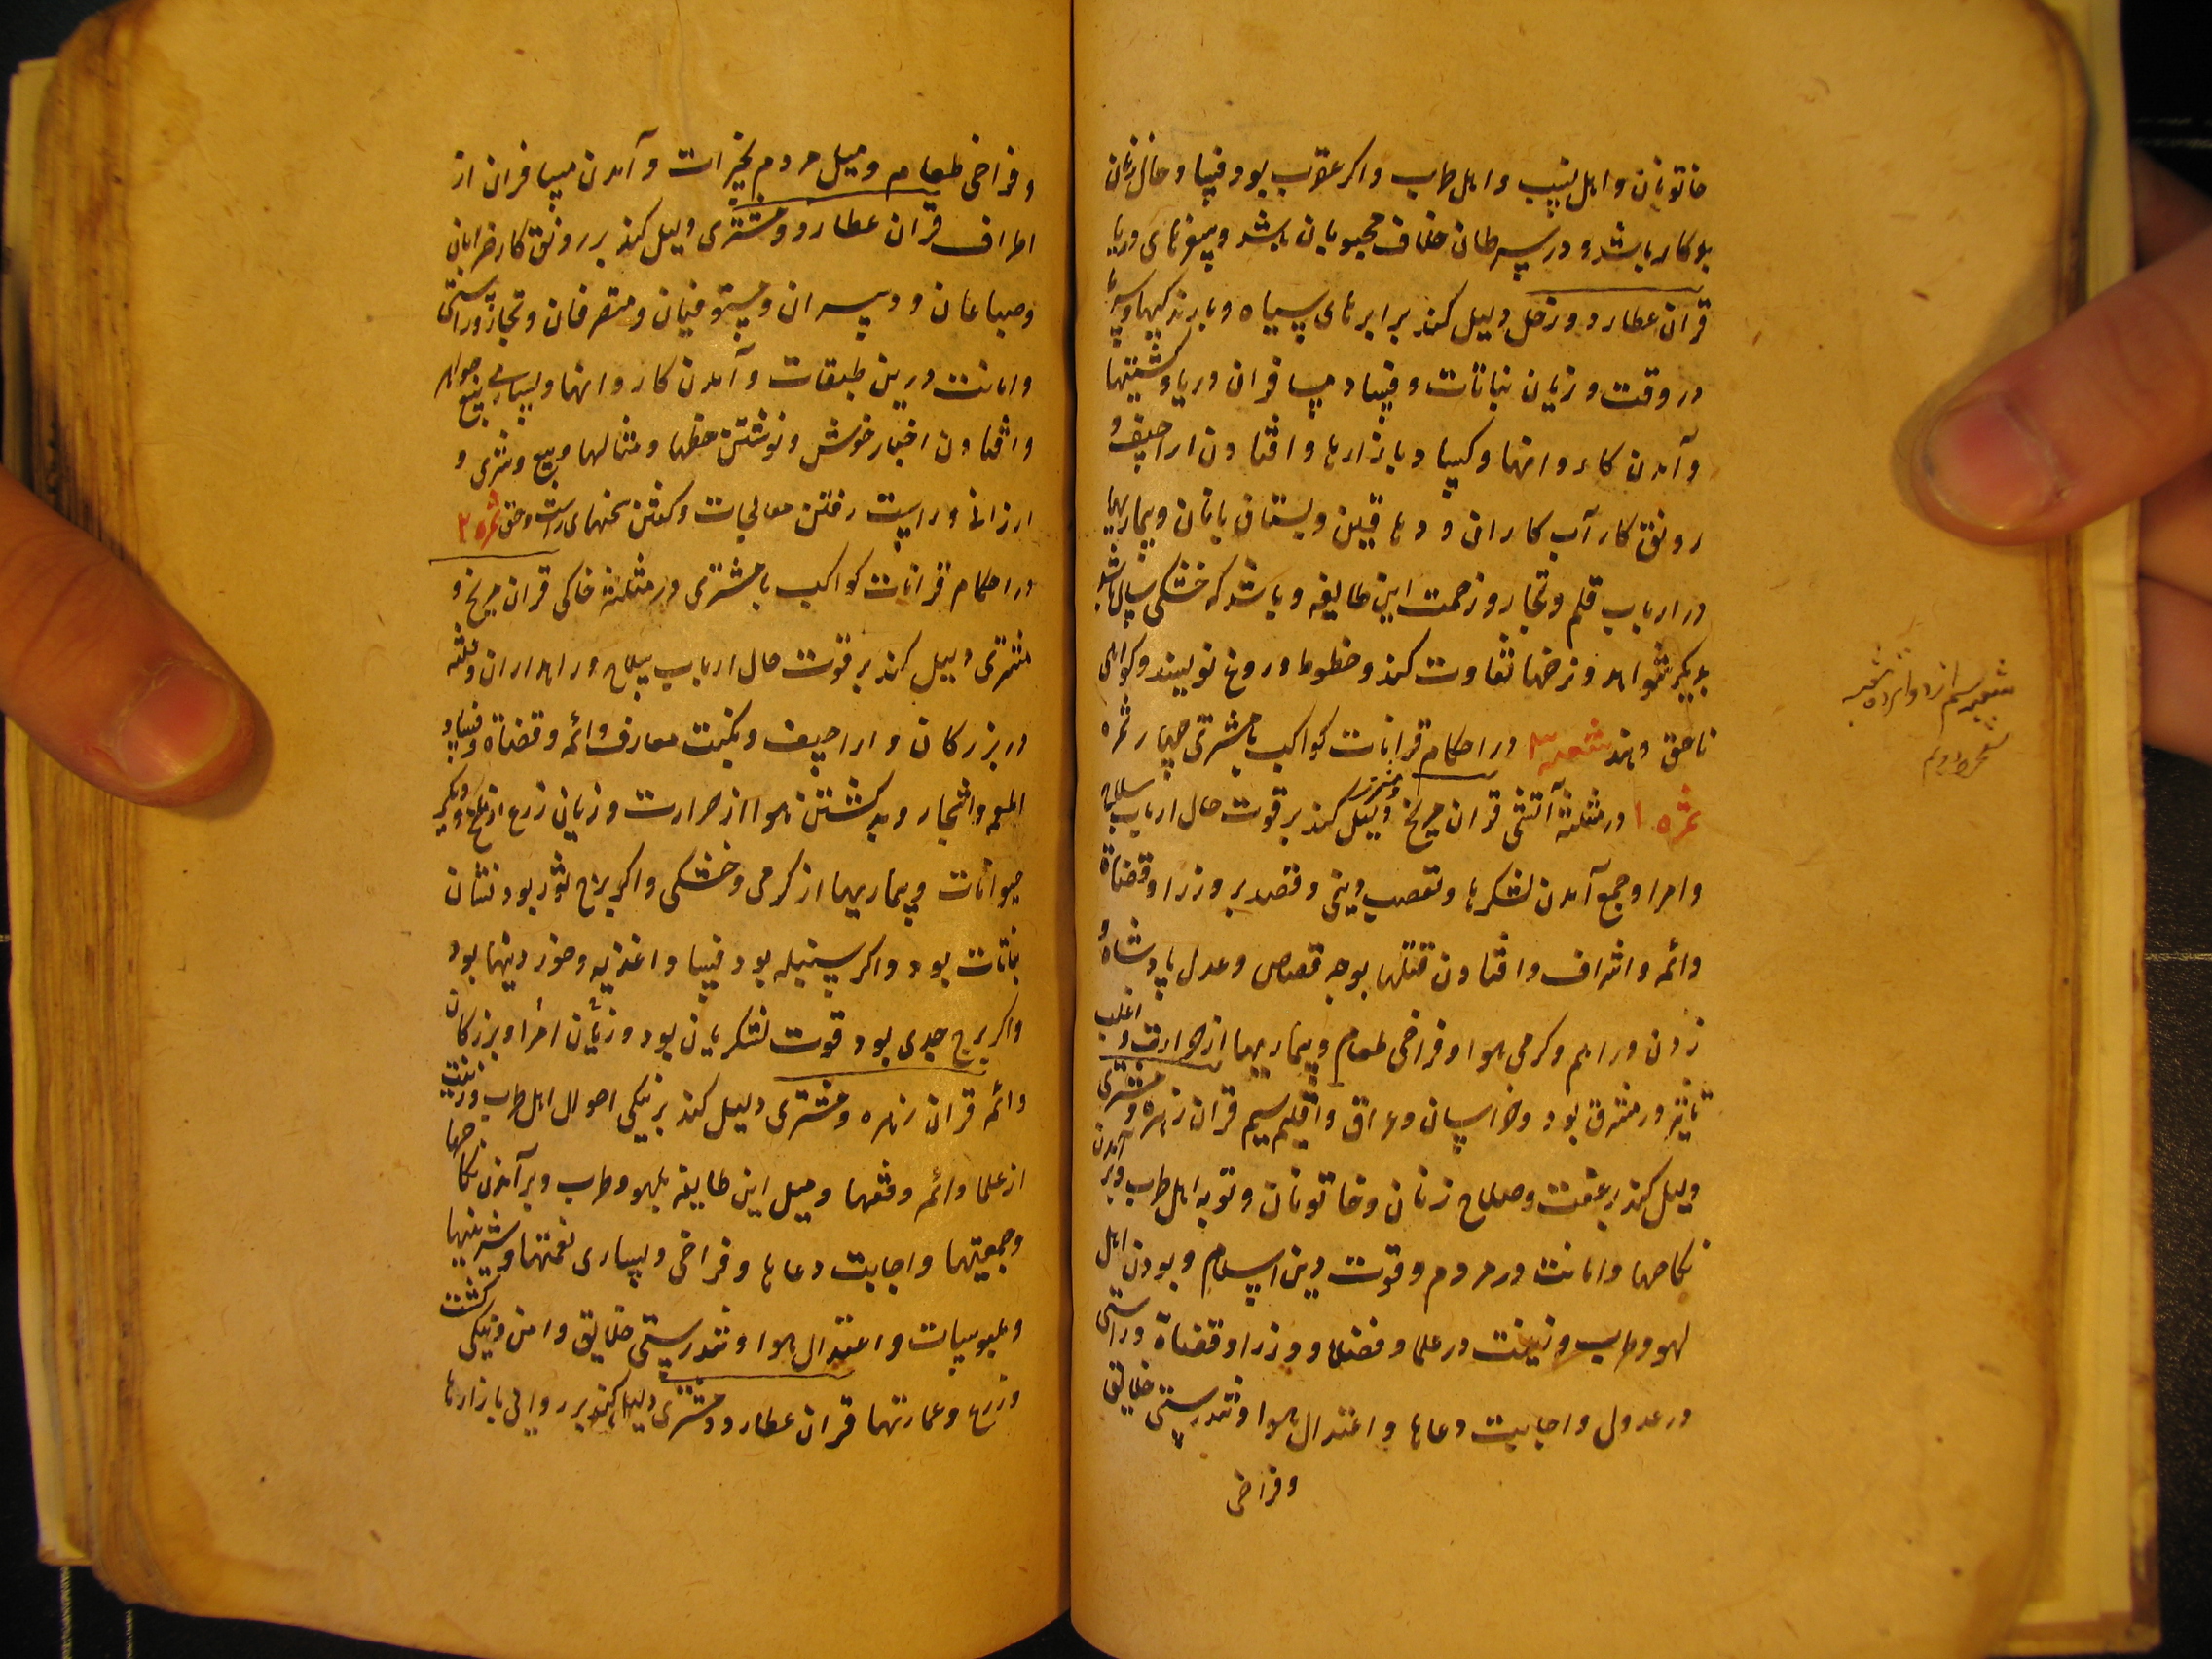 خاتونان و اهل نسب و اهل طرب و اکر عقرب بود فساد حال زنان
بدکار باشد و در سرطان خلاف محبوبان باشد و سفرهای دریا
قران عطارد و زحل دلیل کند بر ابرهای سیاه و بارندکیها
در وقت و زیان نباتات و فساد مسافران دریا و کشتیها
و آمدن کاروانها و کساد بازارها و افتادن اراجیف و
رونق کار آب کاران و دهاقین و بستان بانان و بیماریها
در ارباب قلم و تجار و زحمت این طایفه و باشد که خشکی سال باشد
بدیکر شواهد و نرخها تفاوت کند و خطوط دروغ نویسند و کواهی
ناحق دهند شعبه ۳ در احکام قرانات کواکب با مشتری چهار ثمره
ثمره ۱ در مثلثه آتشی قران مریخ و مشتری دلیل کند بر قوت حال ارباب سلاح
و امرا و جمع آمدن لشکرها و تعصب دینی و قصد بر وزرا و قضاة
و ائمه و اشراف و افتادن قتلها بوجه قصاص و عدل پادشاه و
زدن دراهم و کرمی هوا و فراخی طعام و بیماریها از حرارت و اغلب
تاثیر در مشرق بود و خراسان و عراق و اقلیم سیم قران زهره و مشتری
دلیل کند بر عفت و صلاح زنان و خاتونان و توبه اهل طرب و بر آمدن
نکاحها و امانت در مردم و قوت دین اسلام و بودن اهل
لهو و طرب و زینت در علما و فضلا و وزرا و قضاة و راستی
در عدول و اجابت دعاها و اعتدال هوا و تندرستی خلایق
و فراخی
شعبه سیم از دوازده شعبه
و فراخی طعام و میل مردم بخیرات و آمدن مسافران از
اطراف قران عطارد و مشتری دلیل کند بر رونق کار ضرابان
و صباغان و دبیران و مستوفیان و متصرفان و تجار و راستی
و امانت درین طبقات و آمدن کاروانها و بسیاری بیع جواهر
و افتادن اخبار خوش و نوشتن خطها و مثالها و بیع و شری و
ارزانی و راست رفتن معالجات و کفتن سخنهای راست و حق ثمره ۲
در احکام قرانات کواکب با مشتری در مثلثه خاکی قران مریخ و
مشتری دلیل کند بر قوت حال ارباب سلاح و راهداران و فتنه
در بزرکان و اراجیف و نکبت معارف و ائمه و قضاة و فساد
اطعمه و اشجار و بد کشتن هوا از حرارت و زیان زرع از ملخ و دیکر
حیوانات و بیماریها از کرمی و خشکی و اکر برج ثور بود نشان
نباتات بود و اکر سنبله بود فساد اغذیه و خوردنیها بود
و اکر برج جدی بود قوت لشکریان بود و زیان امرا و بزرکان
و ائمه قران زهره و مشتری دلیل کند بر نیکی احوال اهل طرب و زینت
از علما و ائمه و فقها و میل این طایفه بلهو و طرب و بر آمدن نکاحها
و جمعیتها و اجابت دعاها و فراخی و بسیاری نعمتها و شیرینیها
و ملبوسات و اعتدال هوا و تندرستی خلایق و امن و نیکی کشت
و زرع و عمارتها قران عطارد و مشتری دلیل کند بر روایی بازارها